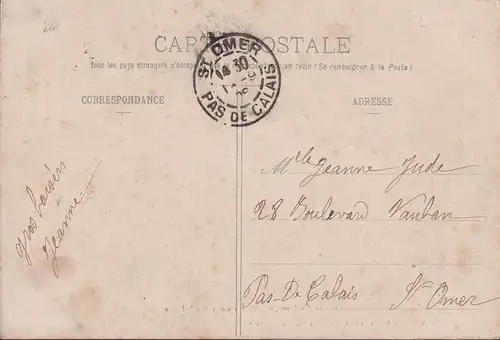 CARTE POSTALE
Tous les pays étrangers n'accep
au recto (Se renseigner à la Poste)
ST OMER
14 30
9
PAS DE CALAIS
CORRESPONDANCE
ADRESSE
Gros baisers
Jeanne
Mlle Jeanne Jude
28 Boulevard Vauban
Pas-De Calais St Omer